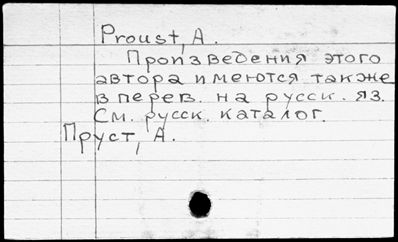 Proust, A.
Произведения этого
автора имеются также
в перев. на русск. яз.
См. русск. каталог.
Пруст, А.